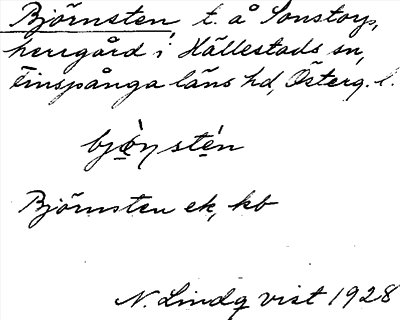 Björnsten, t. å Sonstorp,
herrgård i Hällestads sn,
Finspånga läns hd, Österg. l.
bjö̀ṇstén
Björnsten ek, kb
N. Lindqvist 1928